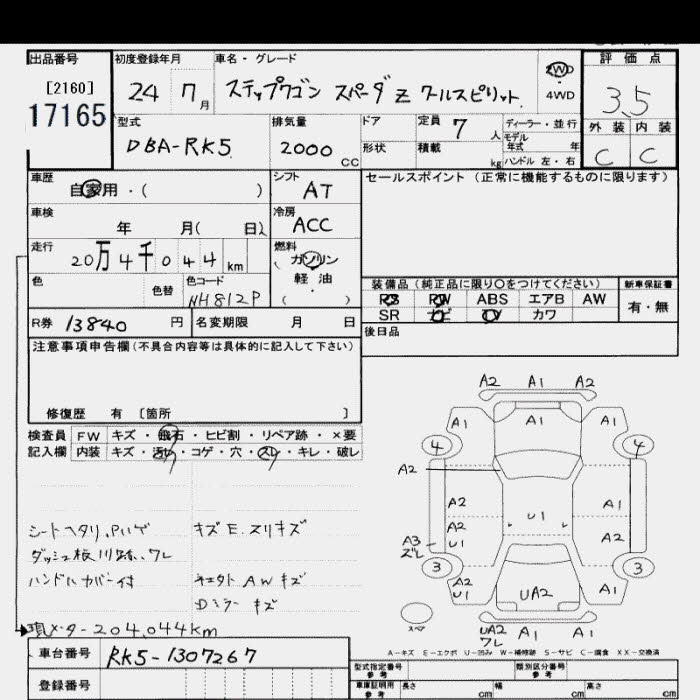 出品番号 初度登録年月 車名・グレード 評価点
[2160] 24 7月 ステップワゴン スパーダ Z クールスピリット 2WD 4WD 3.5
17165
型式 排気量 ドア 定員 7人 ディーラー・並行 外装 内装
DBA-RK5 2000cc 形状 積載 kg モデル年式 年 ハンドル 左・右 C C
車歴 シフト セールスポイント(正常に機能するものに限ります)
自家用・( ) AT
車検 冷房
年 月( 日) ACC
走行 燃料
20万4千044km ガソリン
軽油
( )
色 色替 色コード
NH812P
装備品(純正品に限り○をつけてください) 新車保証書
PS PW ABS エアB AW 有・無
SR ナビ TV カワ
R券 13840円 名変期限 月 日 後日品
注意事項申告欄(不具合内容等は具体的に記入して下さい)
修復歴 有 [箇所 ]
検査員 FW キズ・飛石・ヒビ割・リペア跡・×要
記入欄 内装 キズ・汚れ・コゲ・穴・スレ・キレ・破レ
A2 A1 A2
A1 A1 A1
4 4
A2
A2 U1 A1
A2 A2
A3 U1
ズレ
3 3
A2 UA2 A1
U1
スペア
UA2 A1 A1
ワレ
シートヘタリ、
キズ E、スリキズ
ダッシュ板
ワレ
ハンドルカバー付
AWキズ
Dミラーキズ
現メーター204,044km
A-キズ E-エクボ U-凹み W-補修跡 S-サビ C-腐食 XX-交換済
車台番号 RK5-1307267
登録番号
型式指定番号 参考 類別区分番号 参考
車庫証明用 参考 長さ cm 幅 cm 高さ cm